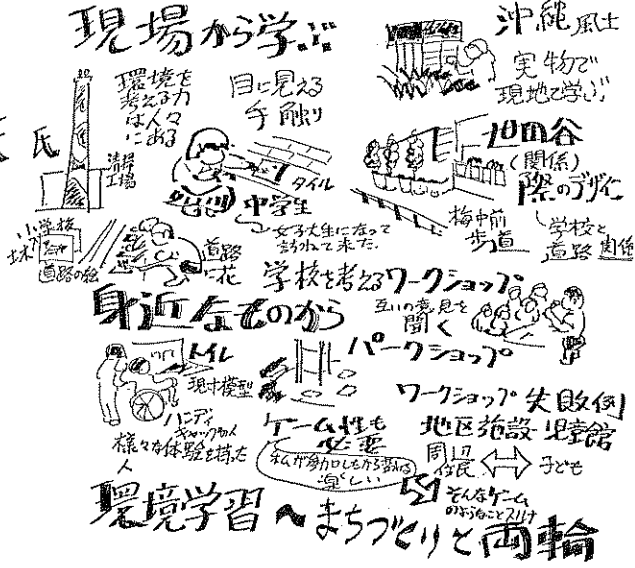 現場から学ぶ
沖縄風土
実物で
現地で学ぶ!
環境を
考える力
は人々
にある
目に見える
手触り
氏
清掃
工場
タイル
中学生
女子大生になって
訪れて来た。
(関係)
際のデザイン
梅中前
歩道
学校と
道路 関係
小学校
道路の絵
道路
に花
学校を考えるワークショップ
身近なものから
互いの意見を
聞く
トイレ
現寸模型
パークショップ
ハンディ
キャップの人
様々な体験を持った
人
ゲーム性も
必要
楽しい
ワークショップ 失敗例
地区施設 児童館
周辺
住民 ⇔ 子ども
そんなゲーム
のようなこと
環境学習へまちづくりと両輪